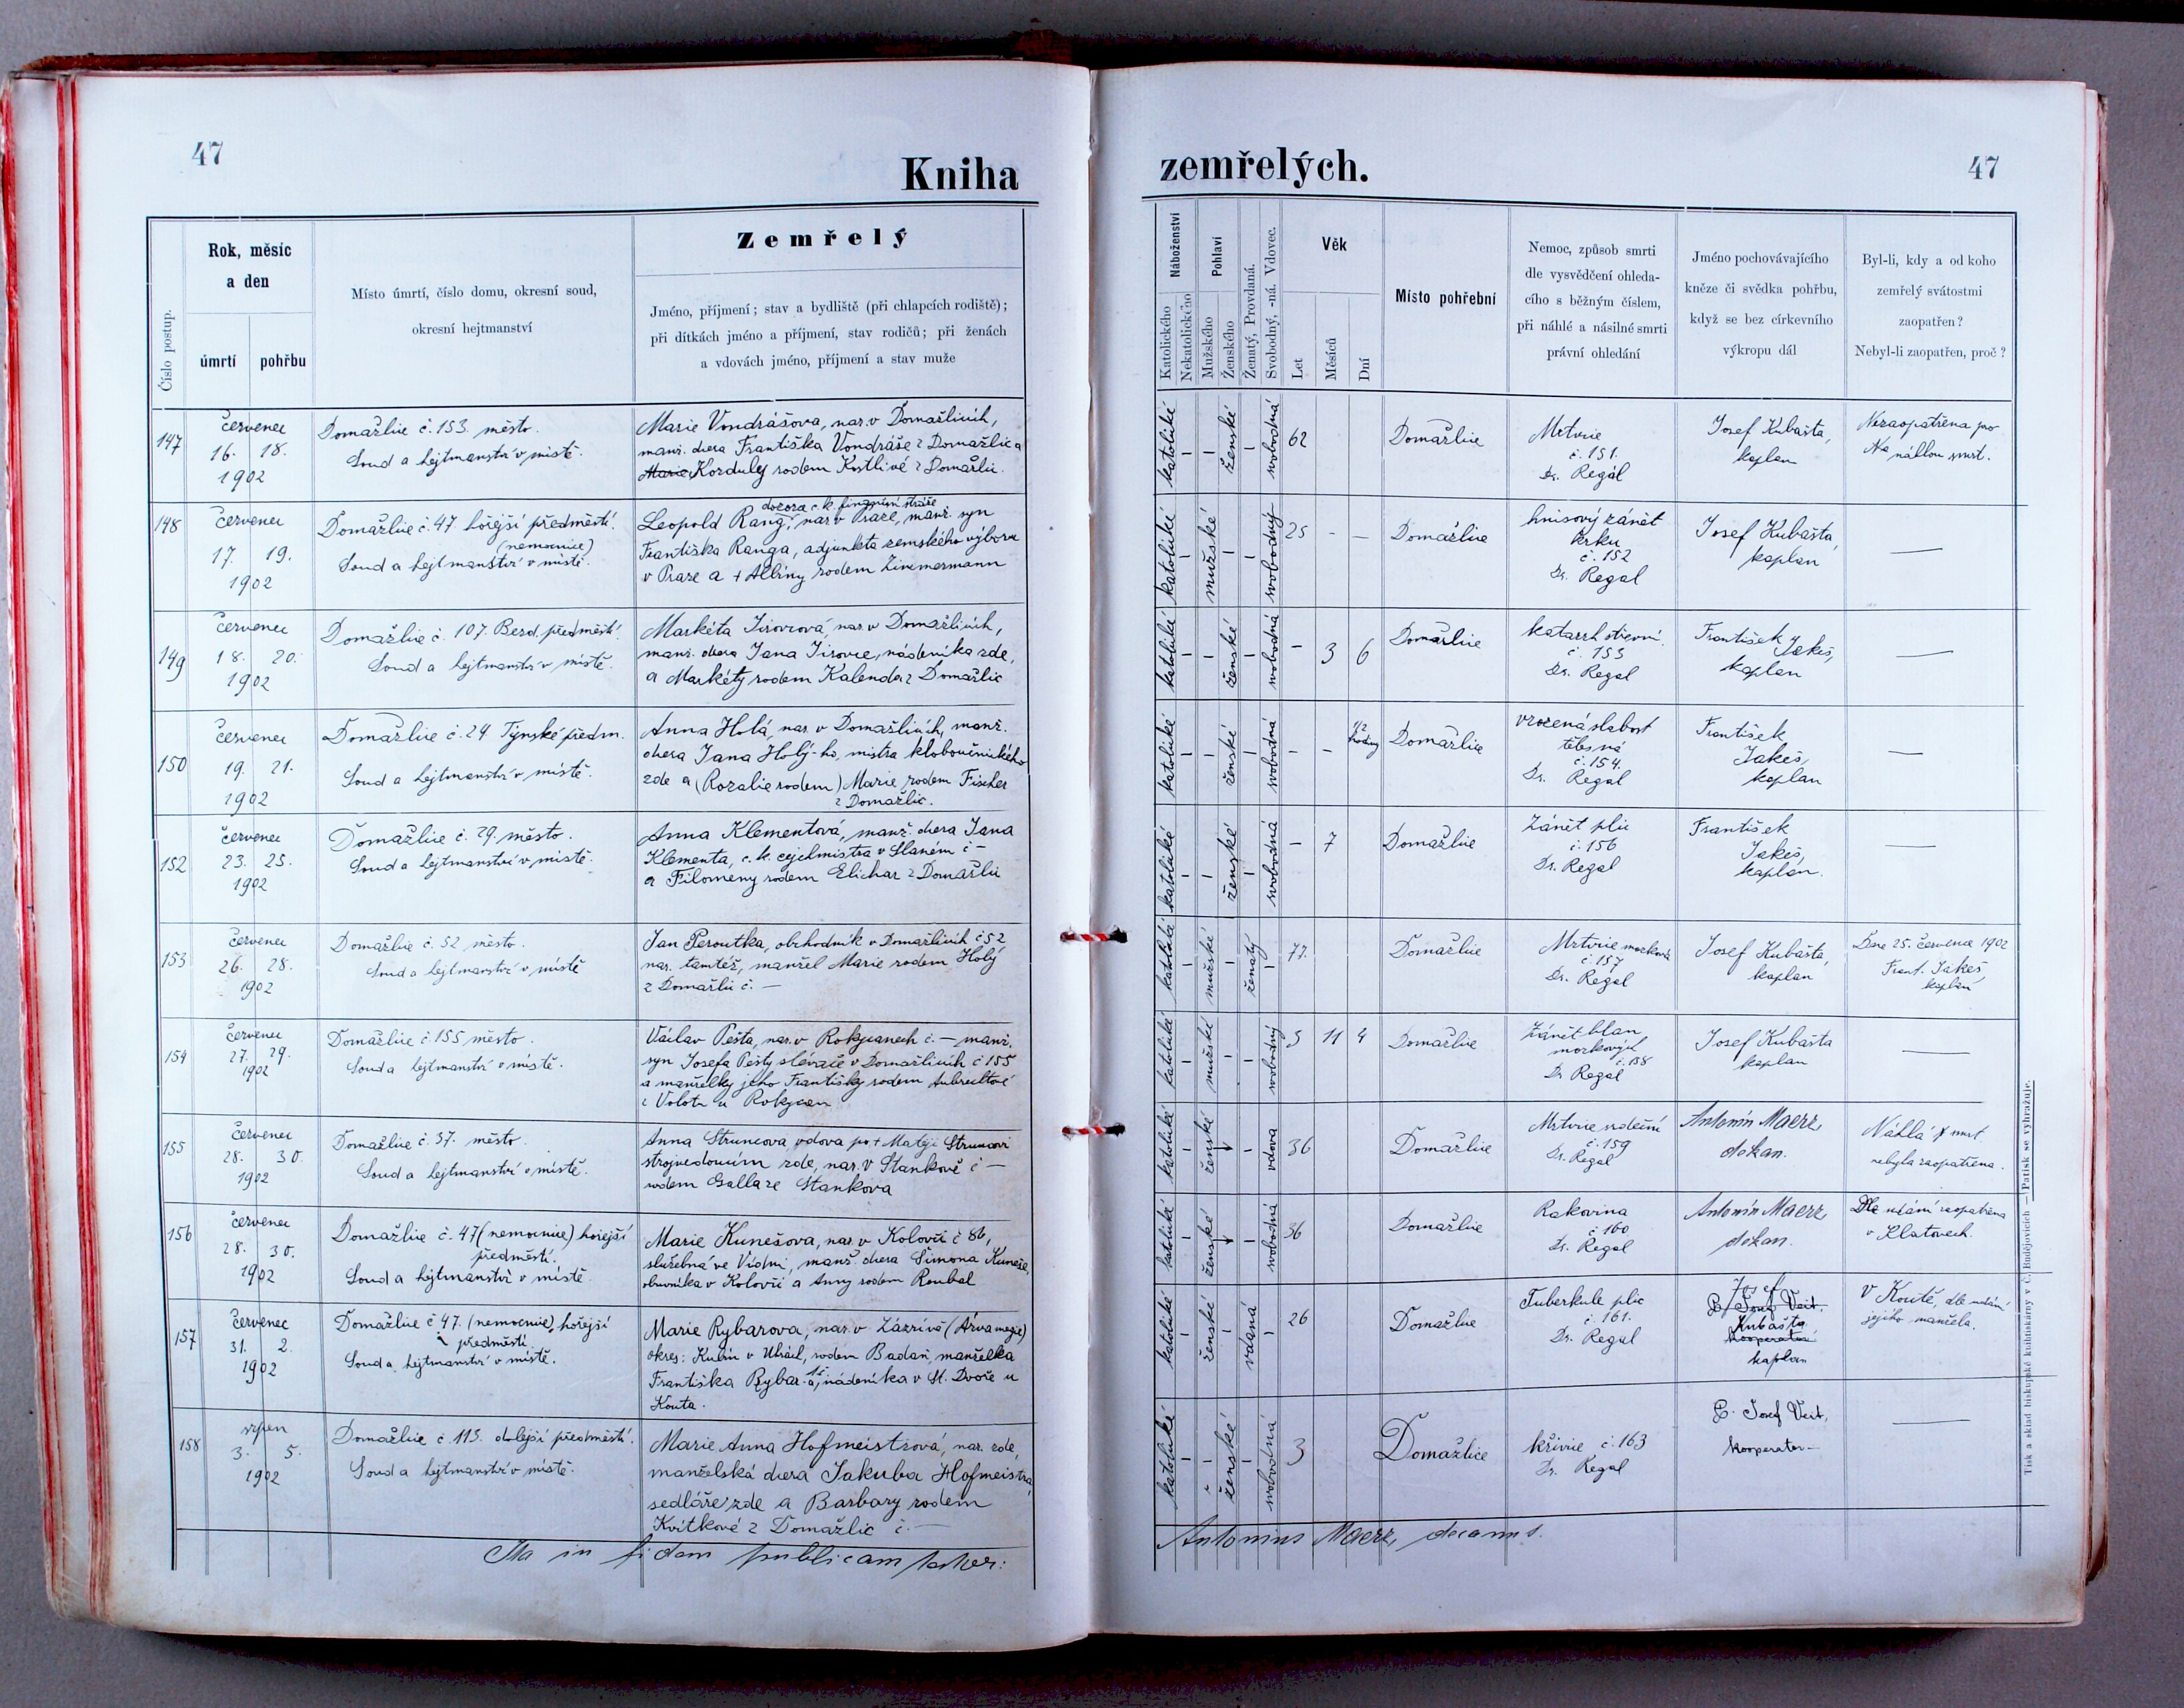 47
Kniha
Číslo postup.
Rok, měsíc
a den
úmrtí
pohřbu
Místo úmrtí, číslo domu, okresní soud,
okresní hejtmanství
Zemřelý
Jméno, příjmení; stav a bydliště (při chlapcích rodiště);
při dítkách jméno a příjmení, stav rodičů; při ženách
a vdovách jméno, příjmení a stav muže
147
červenec
16. 18.
1902
Domažlice č. 153. město.
Soud a hejtmanství v místě.
Marie Vondrášova, nar. v Domažlicích,
manž. dcera Františka Vondráše z Domažlic a
Marie Korduly rodem Kostlivé z Domažlic.
148
červenec
17. 19.
1902
Domažlice č. 47 hořejší předměstí.
(nemocnice)
Soud a hejtmanství v místě.
dozorce c. k. finanční stráže
Leopold Rang, nar. v Praze, manž. syn
Františka Ranga, adjunkta zemského výboru
v Praze a + Albíny rodem Zimmermann
149
červenec
18. 20.
1902
Domažlice č. 107. Bezd. předměstí.
Soud a hejtmanství v místě.
Markéta Jírovcová, nar. v Domažlicích,
manž. dcera Jana Jírovce, nádeníka zde,
a Markéty rodem Kalenda z Domažlic
150
červenec
19. 21.
1902
Domažlice č. 24 Týnské předm.
Soud a hejtmanství v místě.
Anna Holá, nar. v Domažlicích, manž.
dcera Jana Holý-ho, mistra kloboučnického
zde a (Rozalie rodem) Marie rodem Fischer
z Domažlic.
152
červenec
23. 25.
1902
Domažlice č. 29. město.
Soud a hejtmanství v místě.
Anna Klementová, manž. dcera Jana
Klementa, c. k. cejchmistra v Slaném č –
a Filomeny rodem Elichar z Domažlic
153
červenec
26. 28.
1902
Domažlice č. 52 město.
Soud a hejtmanství v místě
Jan Peroutka, obchodník v Domažlicích č 52
nar. tamtéž, manžel Marie rodem Holý
z Domažlic č. –
154
červenec
27. 29.
1902
Domažlice č 155 město.
Soud a hejtmanství v místě.
Václav Pešta, nar. v Rokycanech č. – manž.
syn Josefa Pešty slévače v Domažlicích č 155
a manželky jeho Františky rodem
u Rokycan
155
červenec
28. 30.
1902
Domažlice č. 37. město.
Soud a hejtmanství v místě.
Anna Struncova, vdova po + Matěji Struncovi
strojvedoucím zde, nar. v Stankově č –
rodem Gallas ze Stankova
156
červenec
28. 30.
1902
Domažlice č. 47 (nemocnice) hořejší
předměstí.
Soud a hejtmanství v místě.
Marie Kunešova, nar. v Kolovči č 86,
služebná ve Vídni, manž. dcera Šimona Kuneše,
obuvníka v Kolovči a Anny rodem Roubal
157
červenec
31. 2.
1902
Domažlice č 47. (nemocnice) hořejší
předměstí
Soud a hejtmanství v místě.
Marie Rybarova, nar. v Zázrivě (Árva megye)
okres: Kubín v Uhrách, rodem Badan, manželka
Františka Rybar-a, nádeníka v St. Dvoře u
Kouta.
158
srpen
3. 5.
1902
Domažlice č 113. dolejší předměstí.
Soud a hejtmanství v místě.
Marie Anna Hofmeistrová, nar. zde,
manželská dcera Jakuba Hofmeistra,
sedláře zde a Barbory rodem
Kvítkové z Domažlic č. –
Ita in fidem publicam testor:
zemřelých.
47
Náboženství
Katolického
Nekatolického
Pohlaví
Mužského
Ženského
Ženatý, Provdaná.
Svobodný, -ná. Vdovec.
Věk
Let
Měsíců
Dní
Místo pohřební
Nemoc, způsob smrti
dle vysvědčení ohleda-
cího s běžným číslem,
při náhlé a násilné smrti
právní ohledání
Jméno pochovávajícího
kněze či svědka pohřbu,
když se bez církevního
výkropu dál
Byl-li, kdy a od koho
zemřelý svátostmi
zaopatřen?
Nebyl-li zaopatřen, proč?
katolické – – ženské – svobodná 62
Domažlice
Mrtvice
č. 151.
Dr. Regál
Josef Kubašta,
kaplan
Nezaopatřena pro
náhlou smrt.
katolické – mužské – – svobodný 25 - –
Domažlice
hnisový zánět
krku
č. 152
Dr. Regal
Josef Kubašta,
kaplan
—
katolické – – ženské – svobodná – 3 6
Domažlice
katarrh střevní
č. 153
Dr. Regal
František Jakeš,
kaplan
—
katolické – – ženské – svobodná – – 1/2 hodiny
Domažlice
vrozená slabost
tělesná
č. 154.
Dr. Regal
František
Jakeš,
kaplan
—
katolické – – ženské – svobodná – 7
Domažlice
Zánět plic
č. 156
Dr. Regal
František
Jakeš,
kaplan.
—
katolické – mužské – ženatý – 77.
Domažlice
Mrtvice mozková
č. 157
Dr. Regal
Josef Kubašta,
kaplan
Dne 25. července 1902
Frant. Jakeš,
kaplan
katolické – mužské – – svobodný 3 11 4
Domažlice
Zánět blan
mozkových
č. 158
Dr Regal
Josef Kubašta
kaplan
—
katolické – ženské – vdova 36
Domažlice
Mrtvice srdeční
č. 159
Dr. Regal
Antonín Maerz,
děkan.
Náhlá smrt.
nebyla zaopatřena.
katolické – ženské – svobodná 36
Domažlice
Rakovina
č 160
Dr. Regal
Antonín Maerz,
děkan.
Dle udání zaopatřena
v Klatovech.
katolické – ženské – vdaná – 26
Domažlice
Tuberkule plic
č. 161.
Dr. Regal
Josef
P. Josef Veit,
Kubašta
kooperator
kaplan
V Koutě, dle udání
jejího manžela.
katolické – – ženské – svobodná 3
Domažlice
křivice č. 163
Dr. Regal
P. Josef Veit,
kooperator –
—
Antonius Maerz, decanus.
Tisk a sklad biskupské knihtiskárny v Č. Budějovicích — Patisk se vyhražuje.